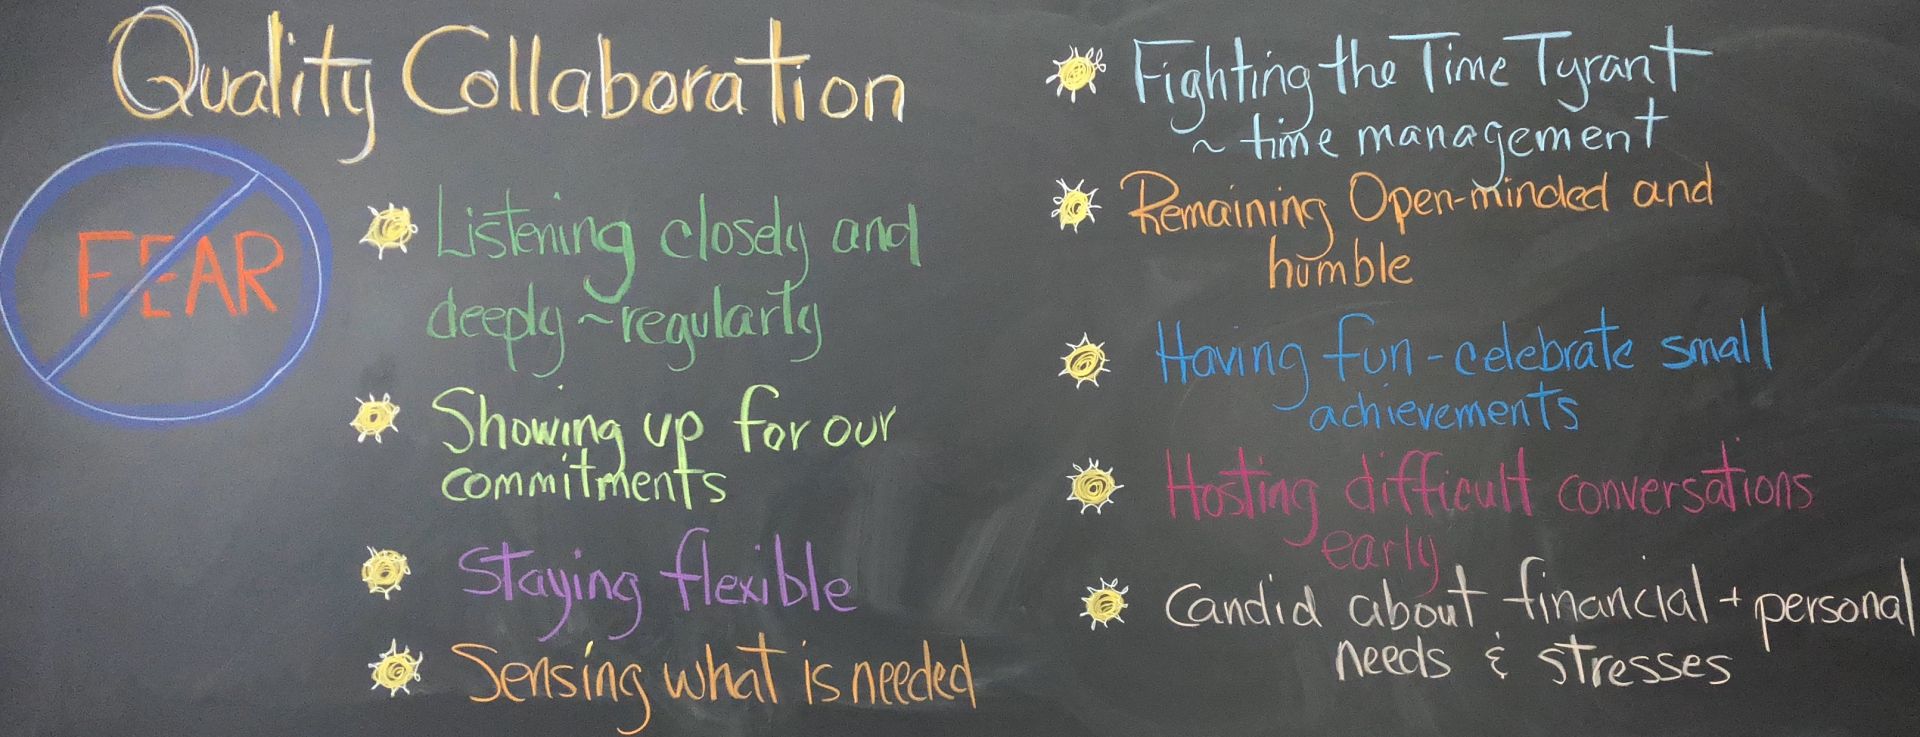 Quality Collaboration
FEAR
Listening closely and
deeply ~ regularly
Showing up for our
commitments
Staying flexible
Sensing what is needed
Fighting the Time Tyrant
~ time management
Remaining Open-minded and
humble
Having fun - celebrate small
achievements
Hosting difficult conversations
early
Candid about financial + personal
needs & stresses